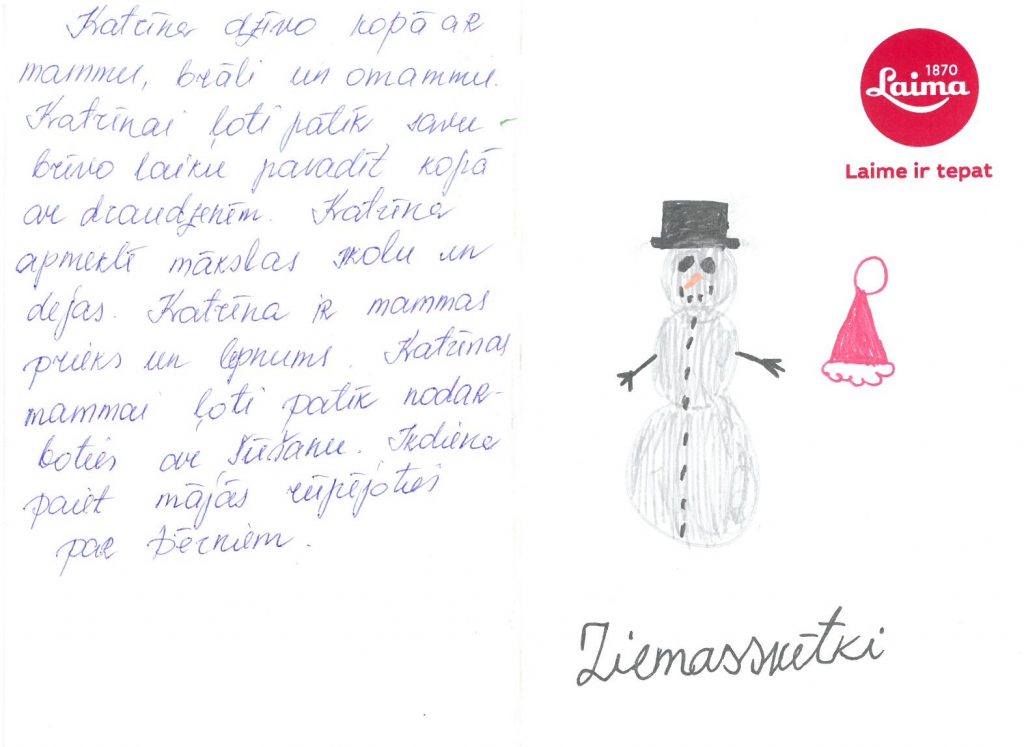 Katrīna dzīvo kopā ar
mammu, brāli un omammu.
Katrīnai ļoti patīk savu
brīvo laiku pavadīt kopā
ar draudzenēm. Katrīna
apmeklē mākslas skolu un
dejas. Katrīna ir mammas
prieks un lepnums. Katrīnas
mammai ļoti patīk nodar-
boties ar šūšanu. Ikdiena
paiet mājās rūpējoties
par bērniem.
1870
Laima
Laime ir tepat
Ziemassvētki